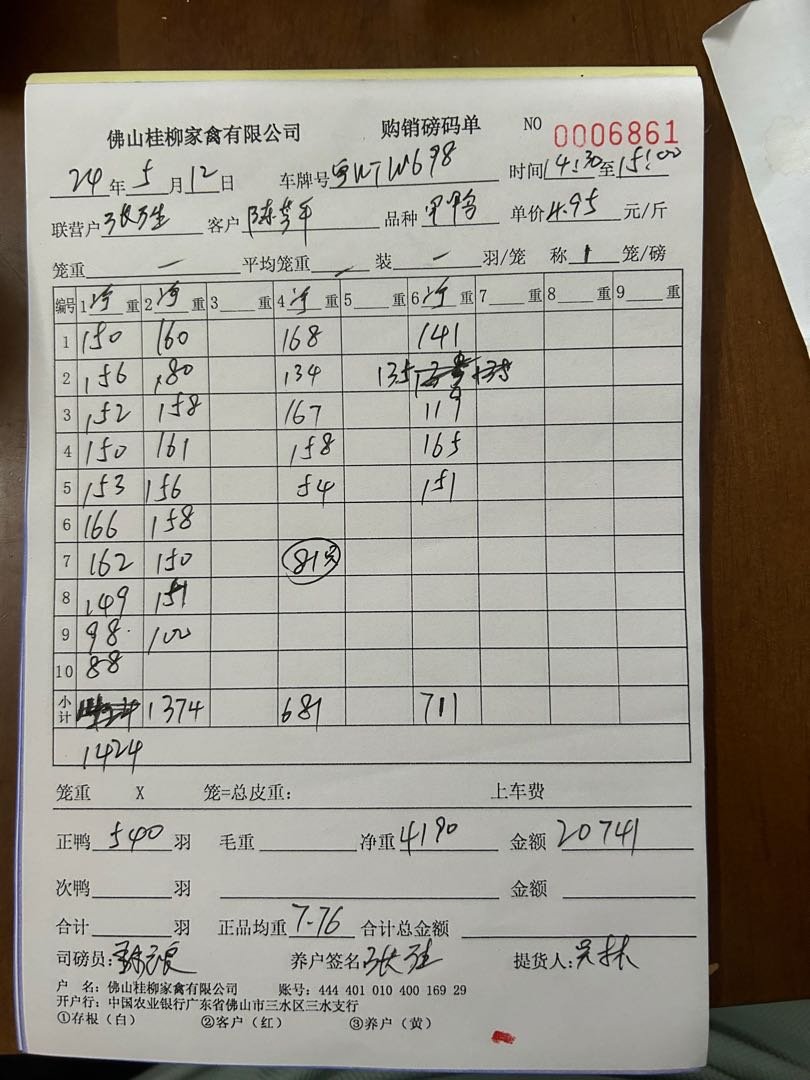 佛山桂柳家禽有限公司 购销磅码单 NO 0006861
24年5月12日 车牌号 W698 时间14:30至15:00
联营户 客户 陈 平 品种 鸭 单价4.95元/斤
笼重 — 平均笼重 — 装 — 羽/笼 称 1 笼/磅
编号 1净重 2净重 3重 4净重 5重 6净重 7重 8重 9重
1 150 160 168 141
2 156 180 134 135 135
3 152 158 167 119
4 150 161 158 165
5 153 156 54 151
6 166 158
7 162 150 81只
8 149 151
9 98 100
10 88
小计 1374 681 711
1424
笼重 X 笼=总皮重: 上车费
正鸭 540 羽 毛重 净重 4190 金额 20741
次鸭 羽 金额
合计 羽 正品均重 7.76 合计总金额
司磅员: 养户签名 张 提货人: 林
户 名: 佛山桂柳家禽有限公司 账号: 444 401 010 400 169 29
开户行: 中国农业银行广东省佛山市三水区三水支行
①存根(白) ②客户(红) ③养户(黄)